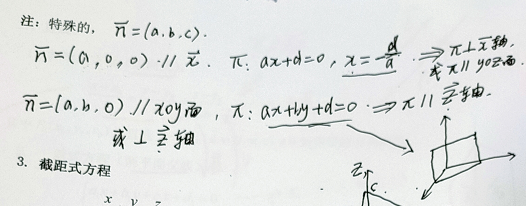 注：特殊的， n⃗=(a.b,c).
n⃗=(a,0,0) // x⃗. π: ax+d=0, x=-d/a ⇒ π⊥x⃗轴,
或 π// yoz面.
n⃗=(a,b,0) // xoy面, π: ax+by+d=0 ⇒ π// z⃗轴.
或⊥ z⃗轴
3. 截距式方程
z
c
x y z